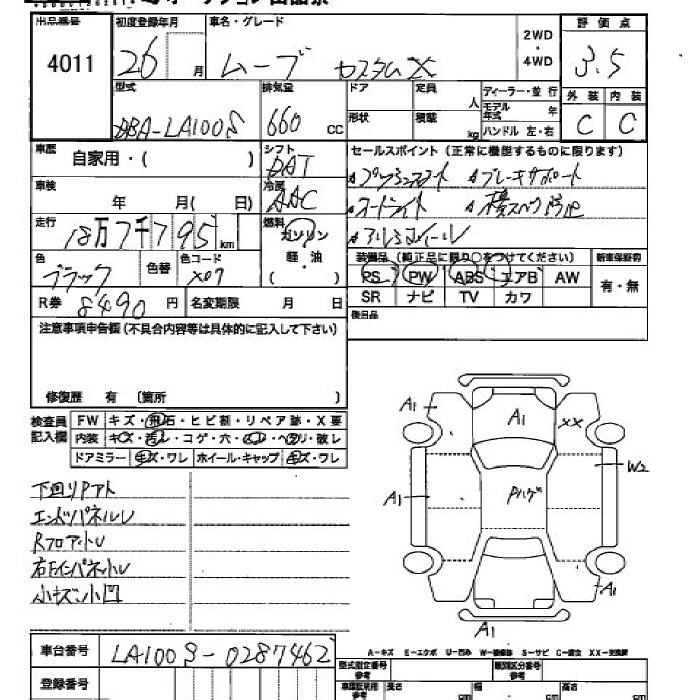 出品番号 初度登録年月 車名・グレード 2WD・4WD 評価点
4011 26 月 ムーブ カスタムX 3.5
型式 排気量 ドア 定員 人 ディーラー・並行 外装 内装
DBA-LA100S 660 CC 形状 積載 kg モデル年式 年 C C
ハンドル 左・右
車歴 自家用・( ) シフト DAT セールスポイント(正常に機能するものに限ります)
車検 年 月( 日) 冷房 AAC プッシュスタート ブレーキサポート
走行 18万7千795km 燃料 ガソリン オートライト 横スベリ防止
軽・油 アルミホイール
( )
色 ブラック 色替 色コード X07 装備品(純正品に限り○をつけてください) 新車保証書
R券 8490円 名変期限 月 日 PS PW ABS エアB AW 有・無
SR ナビ TV カワ
注意事項申告欄(不具合内容等は具体的に記入して下さい) 後日品
修復歴 有 〔箇所 〕
検査員記入欄 FW キズ・飛石・ヒビ割・リペア跡・X要
内装 キズ・汚レ・コゲ・穴・ ・ヘタリ・破レ
ドアミラー キズ・ワレ ホイール・キャップ キズ・ワレ
下回りPアト
エンドパネルU
RフロアーU
右FインパネットU
小キズ小凹
A1 A1 XX
W2
A1 Pハゲ
A1
A1
A-キズ E-エクボ U-凹み W-補修跡 S-サビ C-腐食 XX-交換跡
車台番号 LA100S-0287462 型式指定番号 参考 類別区分番号 参考
登録番号 車庫証明用 参考 長さ cm 幅 cm 高さ cm